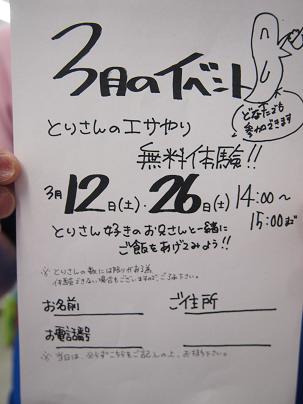 3月のイベント
どなたでも
参加できます
とりさんのエサやり
無料体験!!
3月12日(土)・26日(土) 14:00〜
15:00まで
とりさん好きのお兄さんと一緒に
ご飯をあげてみよう!!
※とりさんの数には限りがある為
体験できない場合もございますので、ご了承下さい。
お名前 ご住所
お電話番号
※当日は、必ずこちらをご記入の上、お持ち下さい。